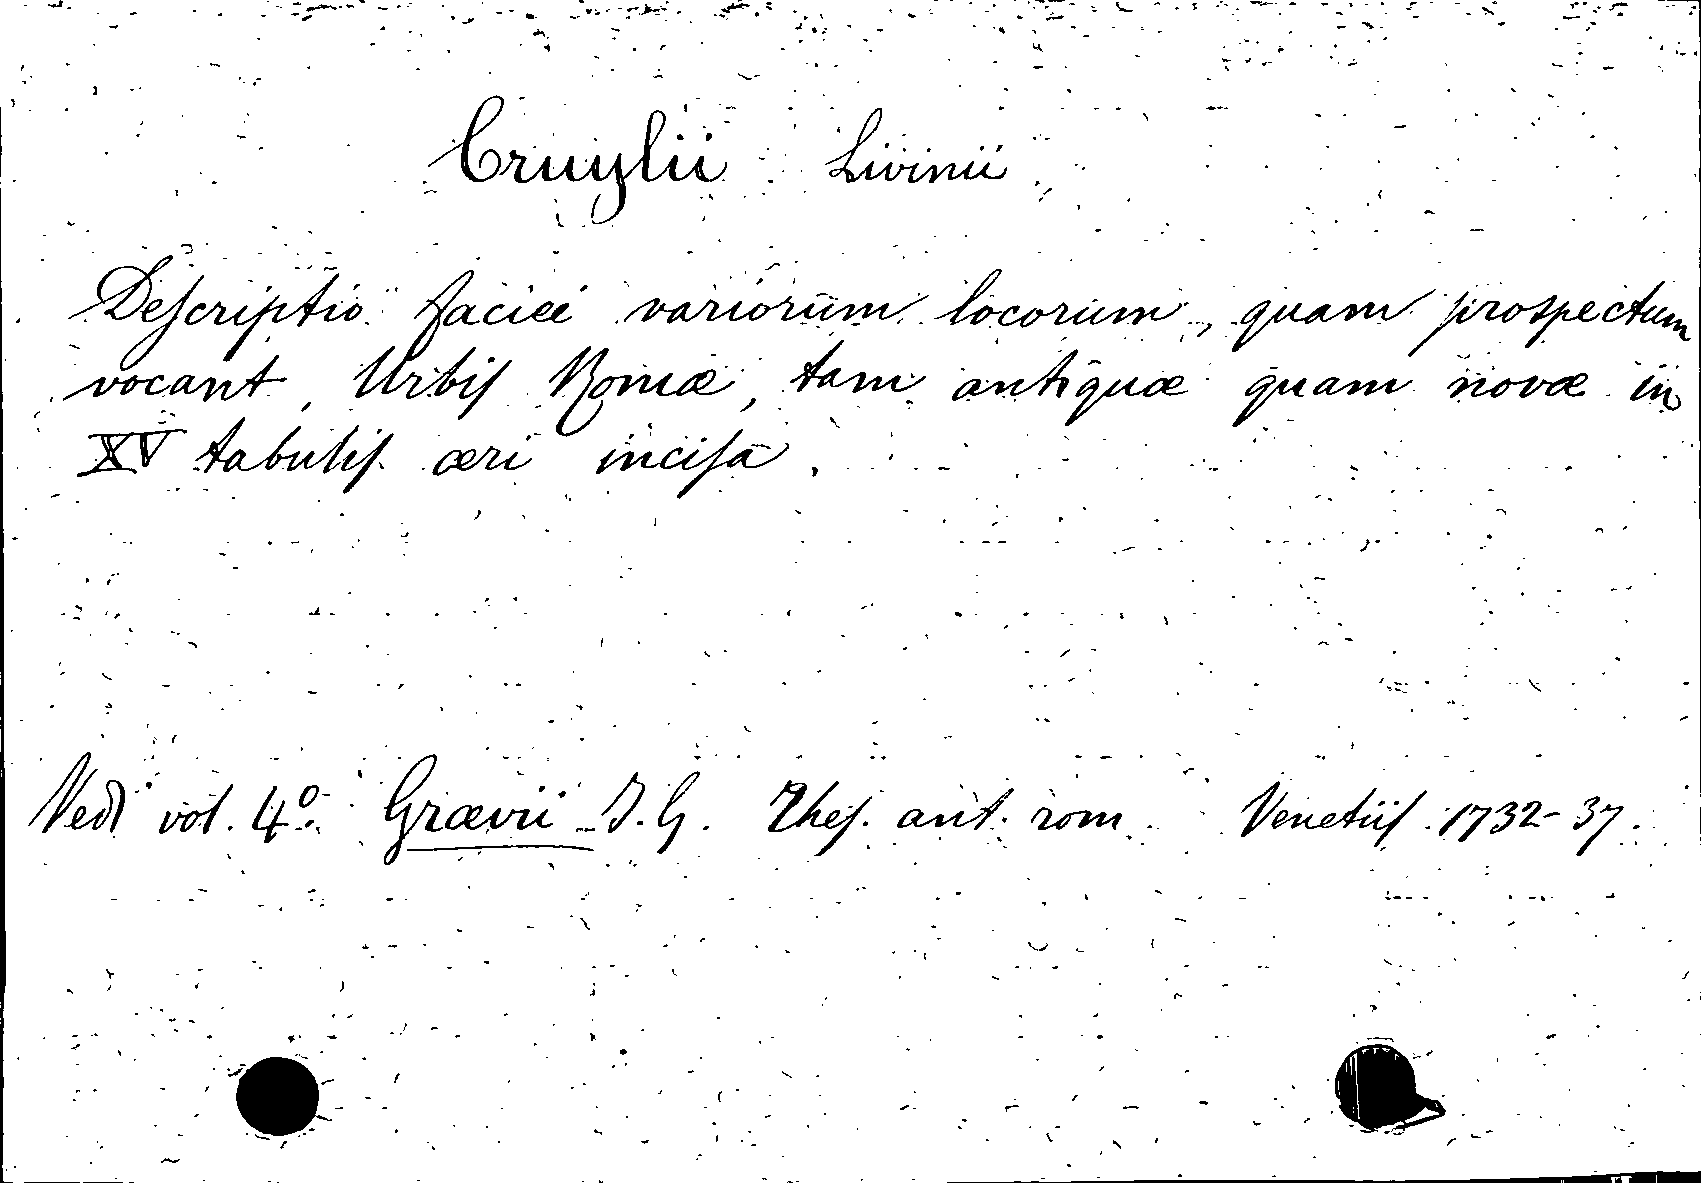 Cruylii Livinii
Deſcriptio faciei variorum locorum, quam prospectum
vocant, Urbiſ Romæ, tam antiquæ quam novæ in
XV tabuliſ æri inciſa.
Vedi vol. 4º Grævii J. G. Theſ. ant. rom. Venetiiſ 1732-37.